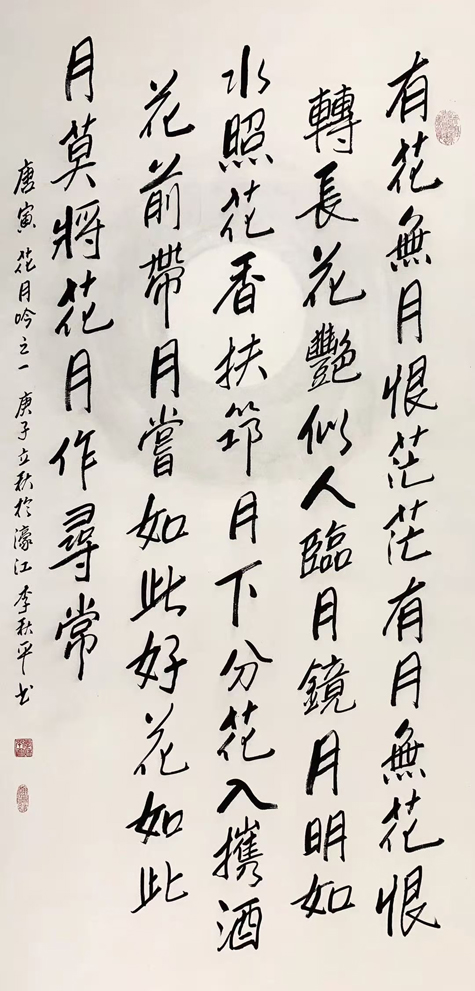 有花無月恨茫茫有月無花恨
轉長花豔似人臨月鏡月明如
水照花香扶筇月下分花入攜酒
花前帶月嘗如此好花如此
月莫將花月作尋常
唐寅 花月吟之一 庚子立秋於濠江 李秋平书